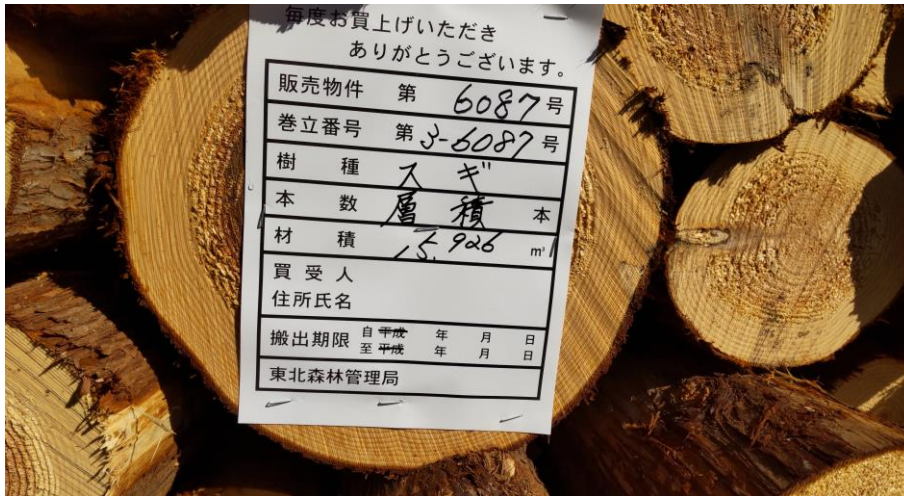 毎度お買上げいただき
ありがとうございます。
販売物件 第 6087号
巻立番号 第3-6087号
樹種 スギ
本数 層積 本
材積 15.926 m³
買受人
住所氏名
搬出期限 自 平成 年 月 日
至 平成 年 月 日
東北森林管理局